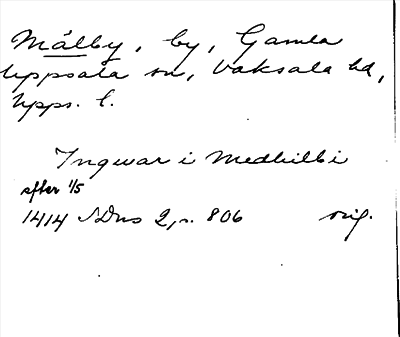 Målby, by, Gamla
Uppsala sn, Vaksala hd,
Upps. l.
Ingwar i Medhilbi
efter 1/5
1414 SDns 2, s. 806 orig.